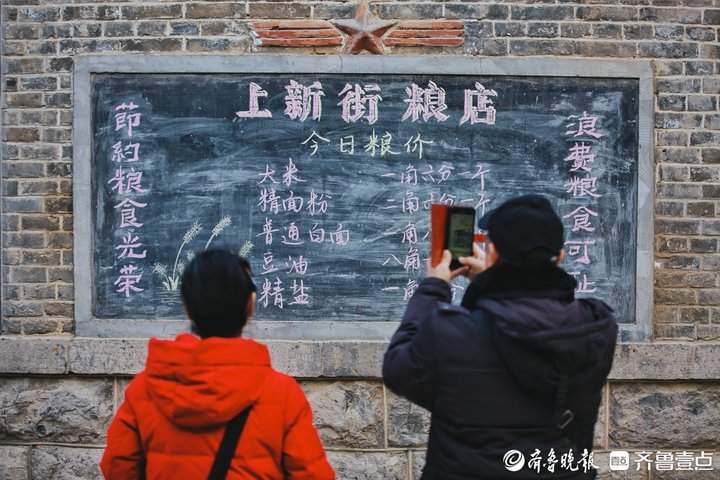 上新街粮店
今日粮价
节约粮食光荣
大米 一角六分一斤
精面粉 二角
普通白面 一角
豆油 八角
精盐 一角
浪费粮食可耻
齐鲁晚报 齐鲁壹点